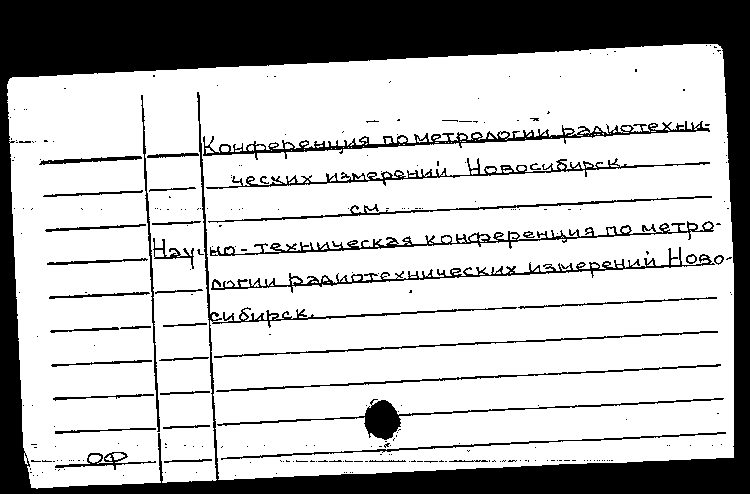 Конференция по метрологии радиотехни-
ческих измерений. Новосибирск.
см.
Научно-техническая конференция по метро-
логии радиотехнических измерений Ново-
сибирск.
ОФ